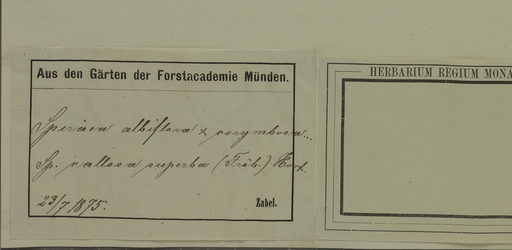 Aus den Gärten der Forstacademie Münden.
Spiraea albiflora × corymbosa...
Sp. callosa superba (Fröb.) Hort.
23/7 1875.
Zabel.
HERBARIUM REGIUM MONA